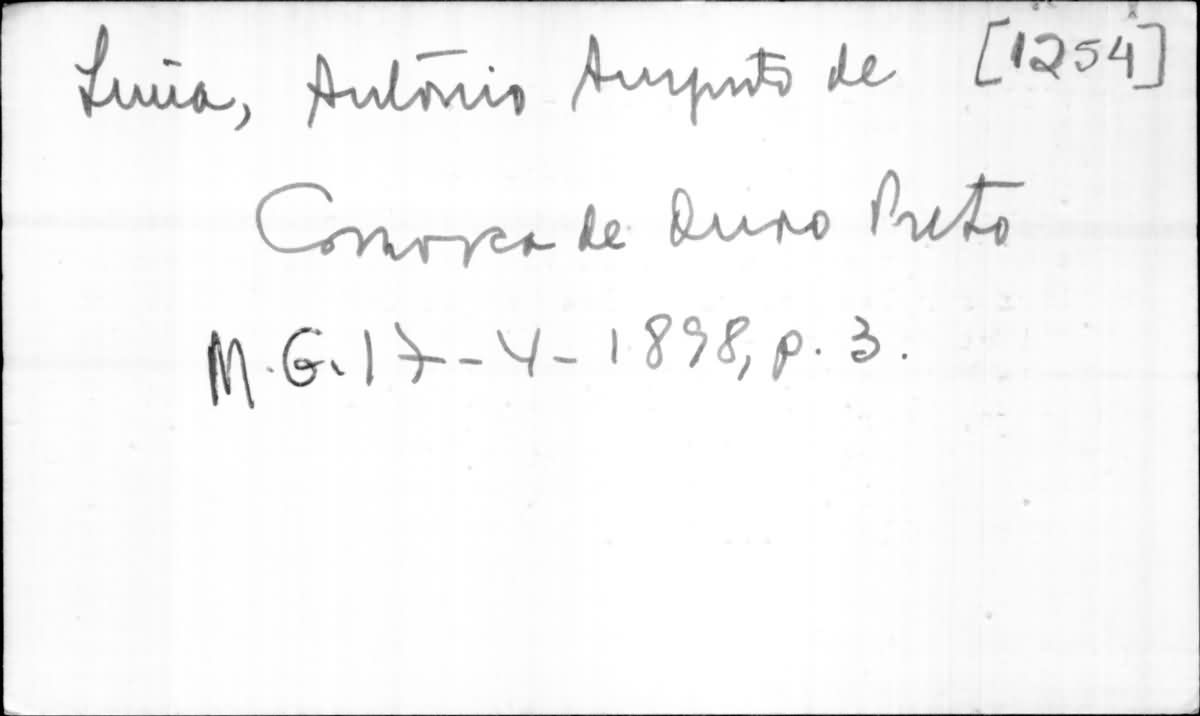 Lima, Antônio Augusto de [1254]
Comarca de Ouro Preto
M.G. 17-4-1898, p. 3.